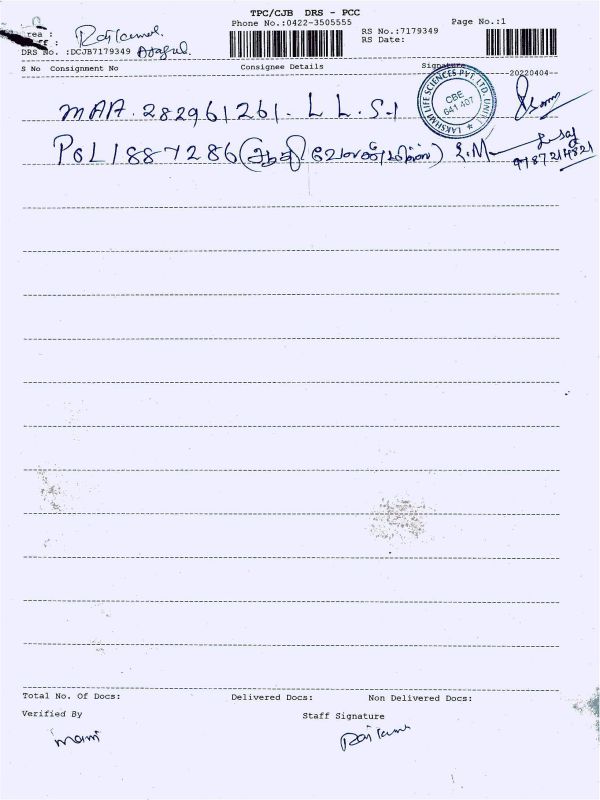 TPC/CJB DRS - PCC
Phone No.:0422-3505555
Page No.:1
RS No.:7179349
RS Date:
rea :
Rajkumar
DRS No. :DCJB7179349
S No Consignment No
Consignee Details
Signature
20220404
MAA. 282961261. L L. S.1
LAKSHMI LIFE SCIENCES PVT. LTD. UNIT I
CBE
641 407
PGL1887286 (ஆதி வேலன் மில்ஸ்) L.M
9787214821
Total No. Of Docs:
Delivered Docs:
Non Delivered Docs:
Verified By
Staff Signature
mani
Rajkumar